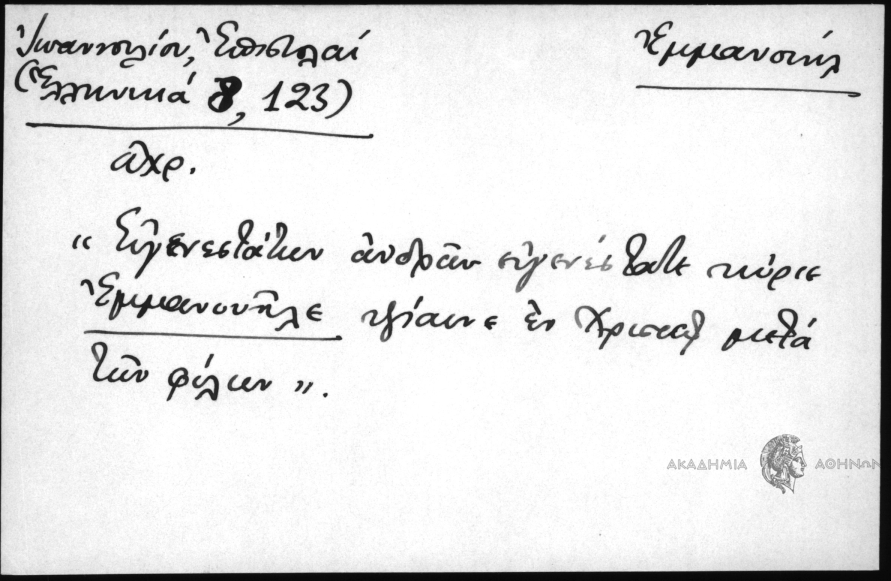 Ἐπιστολαί
Ἐμμανουήλ
(Ἑλληνικά 8, 123)
ἀχρ.
« Εὐγενεστάτων ἀνδρῶν εὐγενέστατε κύριε
Ἐμμανουῆλε ὑγίαινε ἐν Χριστῷ μετὰ
τῶν φίλων ».
ΑΚΑΔΗΜΙΑ ΑΘΗΝΩΝ